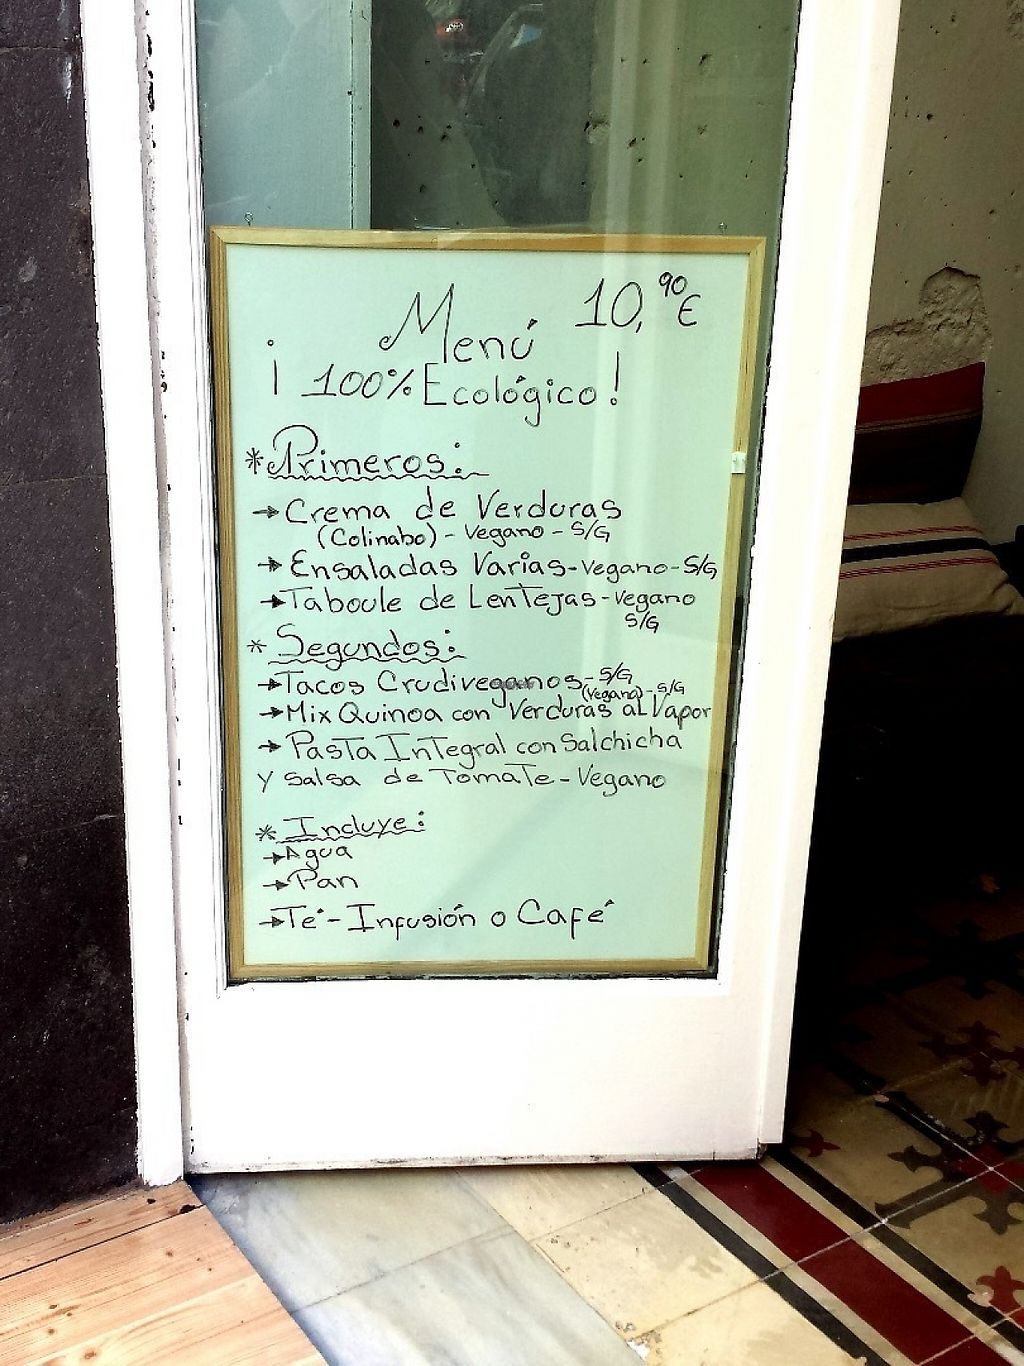 Menú 10,90€
¡100% Ecológico!
*Primeros:
→ Crema de Verduras
(Colinabo) - Vegano - S/G
→ Ensaladas Varias - Vegano - S/G
→ Taboule de Lentejas - Vegano
S/G
* Segundos:
→ Tacos Crudiveganos - S/G
(Vegano) - S/G
→ Mix Quinoa con Verduras al Vapor
→ Pasta Integral con Salchicha
y salsa de Tomate - Vegano
* Incluye:
→ Agua
→ Pan
→ Té - Infusión o Café